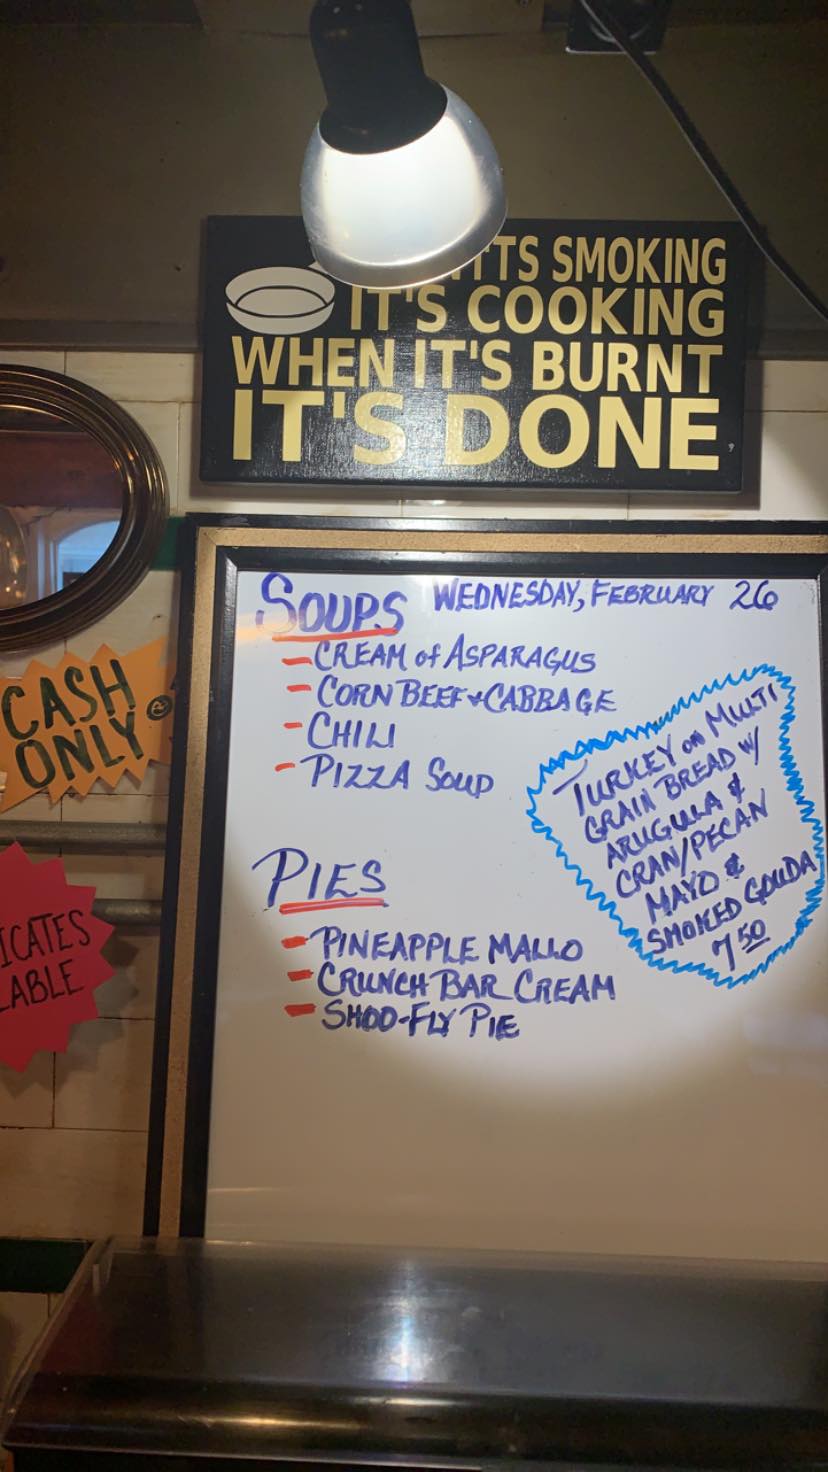 ITS SMOKING
IT'S COOKING
WHEN IT'S BURNT
IT'S DONE
CASH
ONLY
ICATES
LABLE
SOUPS WEDNESDAY, FEBRUARY 26
- CREAM of ASPARAGUS
- CORN BEEF + CABBAGE
- CHILI
- PIZZA SOUP
TURKEY on MULTI
GRAIN BREAD W/
ARUGULA &
CRAN/PECAN
MAYO &
SMOKED GOUDA
7 50
PIES
- PINEAPPLE MALLO
- CRUNCH BAR CREAM
- SHOO-FLY PIE